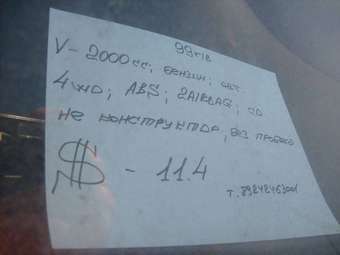 99г.в
V - 2000cc; БЕНЗИН;
4WD; ABS; 2AIRBAG; CD
НЕ КОНСТРУКТОР, БЕЗ ПРОБЕГА
$ - 11.4
т. 89242463001